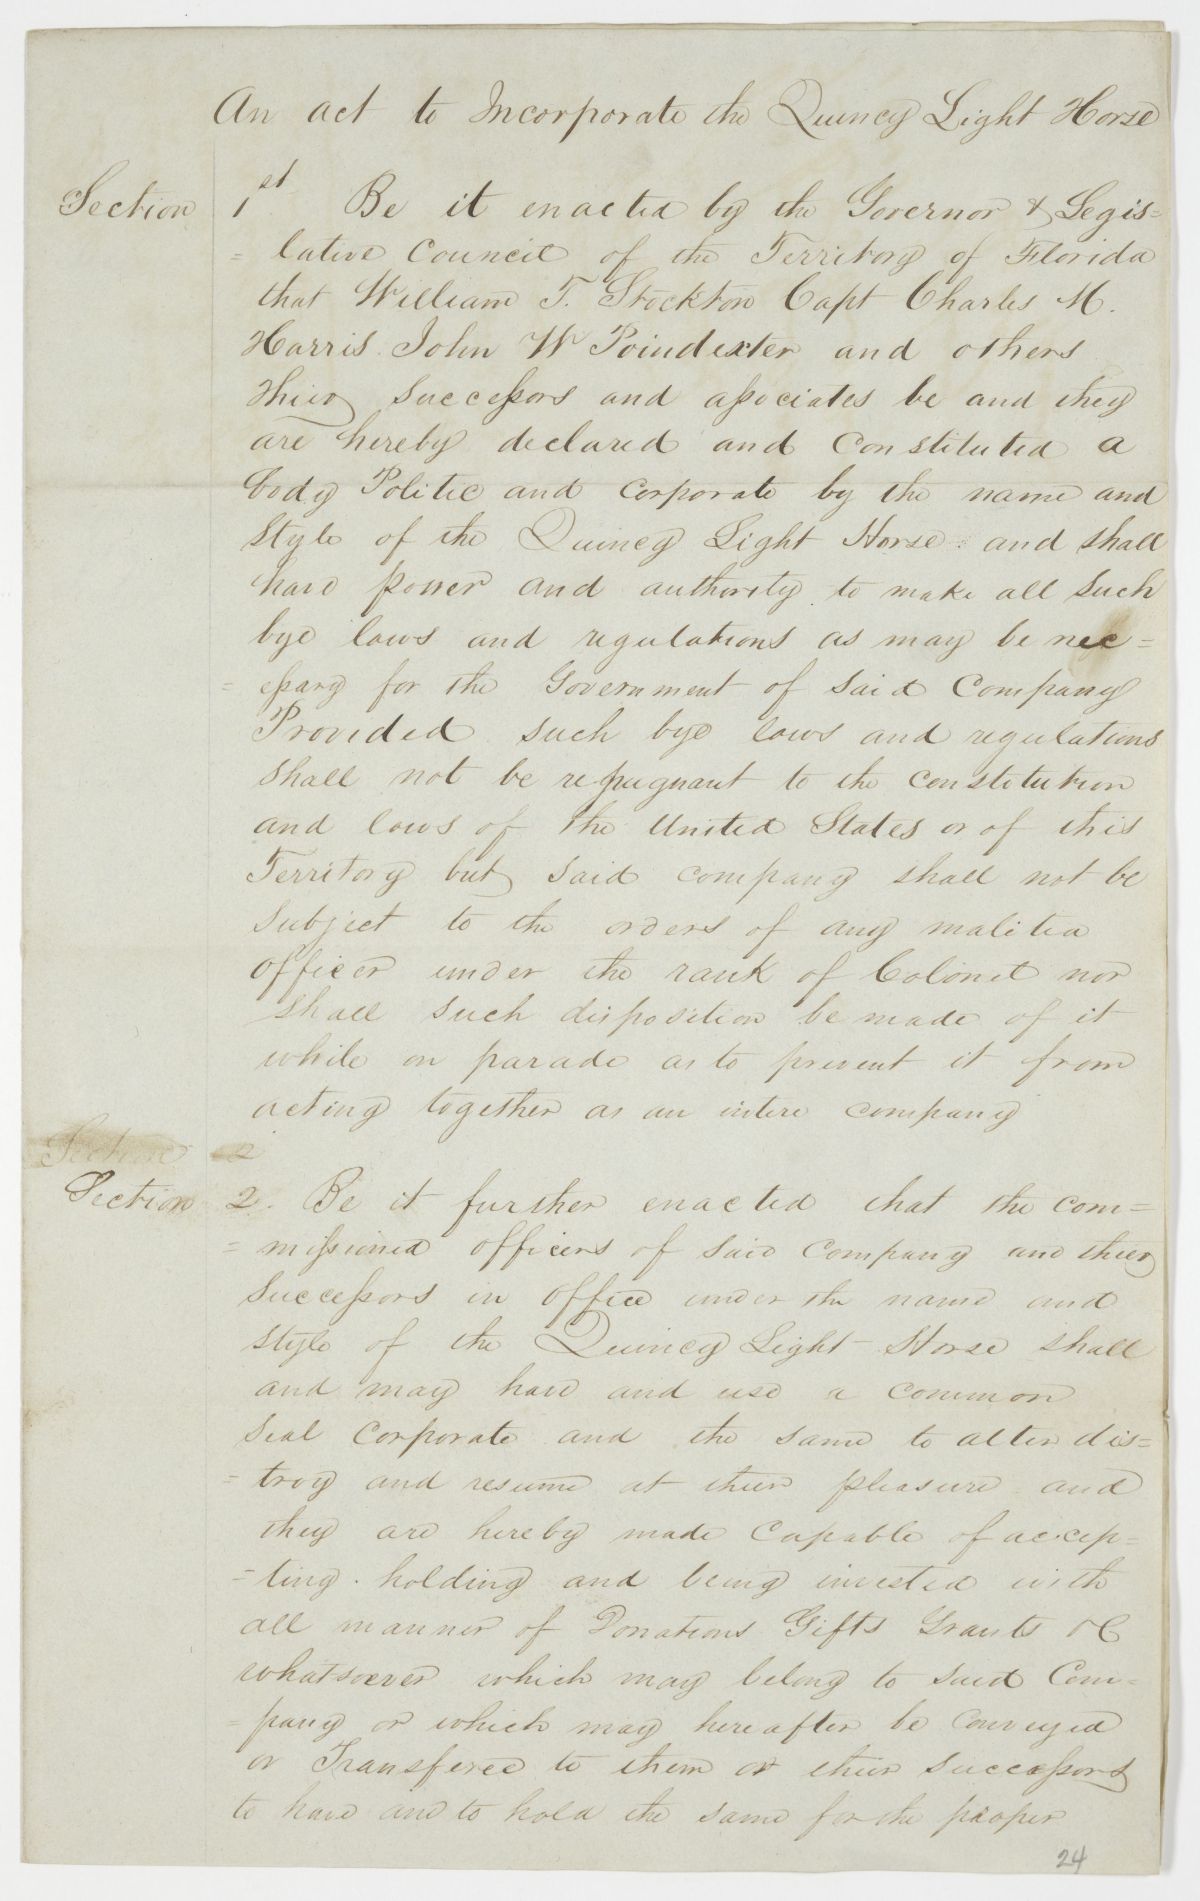 An act to Incorporate the Quincy Light Horse
Section 1st Be it enacted by the Governor & Legis=
= lative Council of the Territory of Florida
that William T. Stockton Capt Charles M.
Harris John W Poindexter and others
thier successors and associates be and they
are hereby declared and constituted a
body Politic and corporate by the name and
style of the Quincy Light Horse and shall
have power and authority to make all such
bye laws and regulations as may be nec=
= essary for the Government of said Company
Provided such bye laws and regulations
shall not be repugnant to the constitution
and laws of the United States or of this
Territory but said company shall not be
subject to the orders of any malitia
officer under the rank of Colonel nor
shall such disposition be made of it
while on parade as to prevent it from
acting together as an intire company
Section 2
Section 2. Be it further enacted that the com=
= missioned officers of said Company and thier
successors in office under the name and
style of the Quincy Light Horse shall
and may have and use a common
seal corporate and the same to alter dis=
= troy and resume at thier pleasure and
they are hereby made capable of accep=
= ting holding and being invested with
all manner of Donations Gifts Grants &C
whatsoever which may belong to said Com=
= pany or which may hereafter be conveyed
or Transfered to them or thier successors
to have and to hold the same for the proper
24